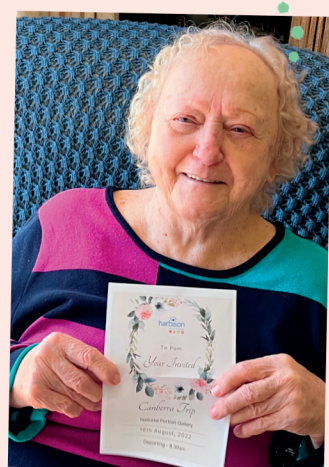 harbison
To Pam
Your Invited
Canberra Trip
National Portrait Gallery
16th August, 2022
Departing - 8.30am